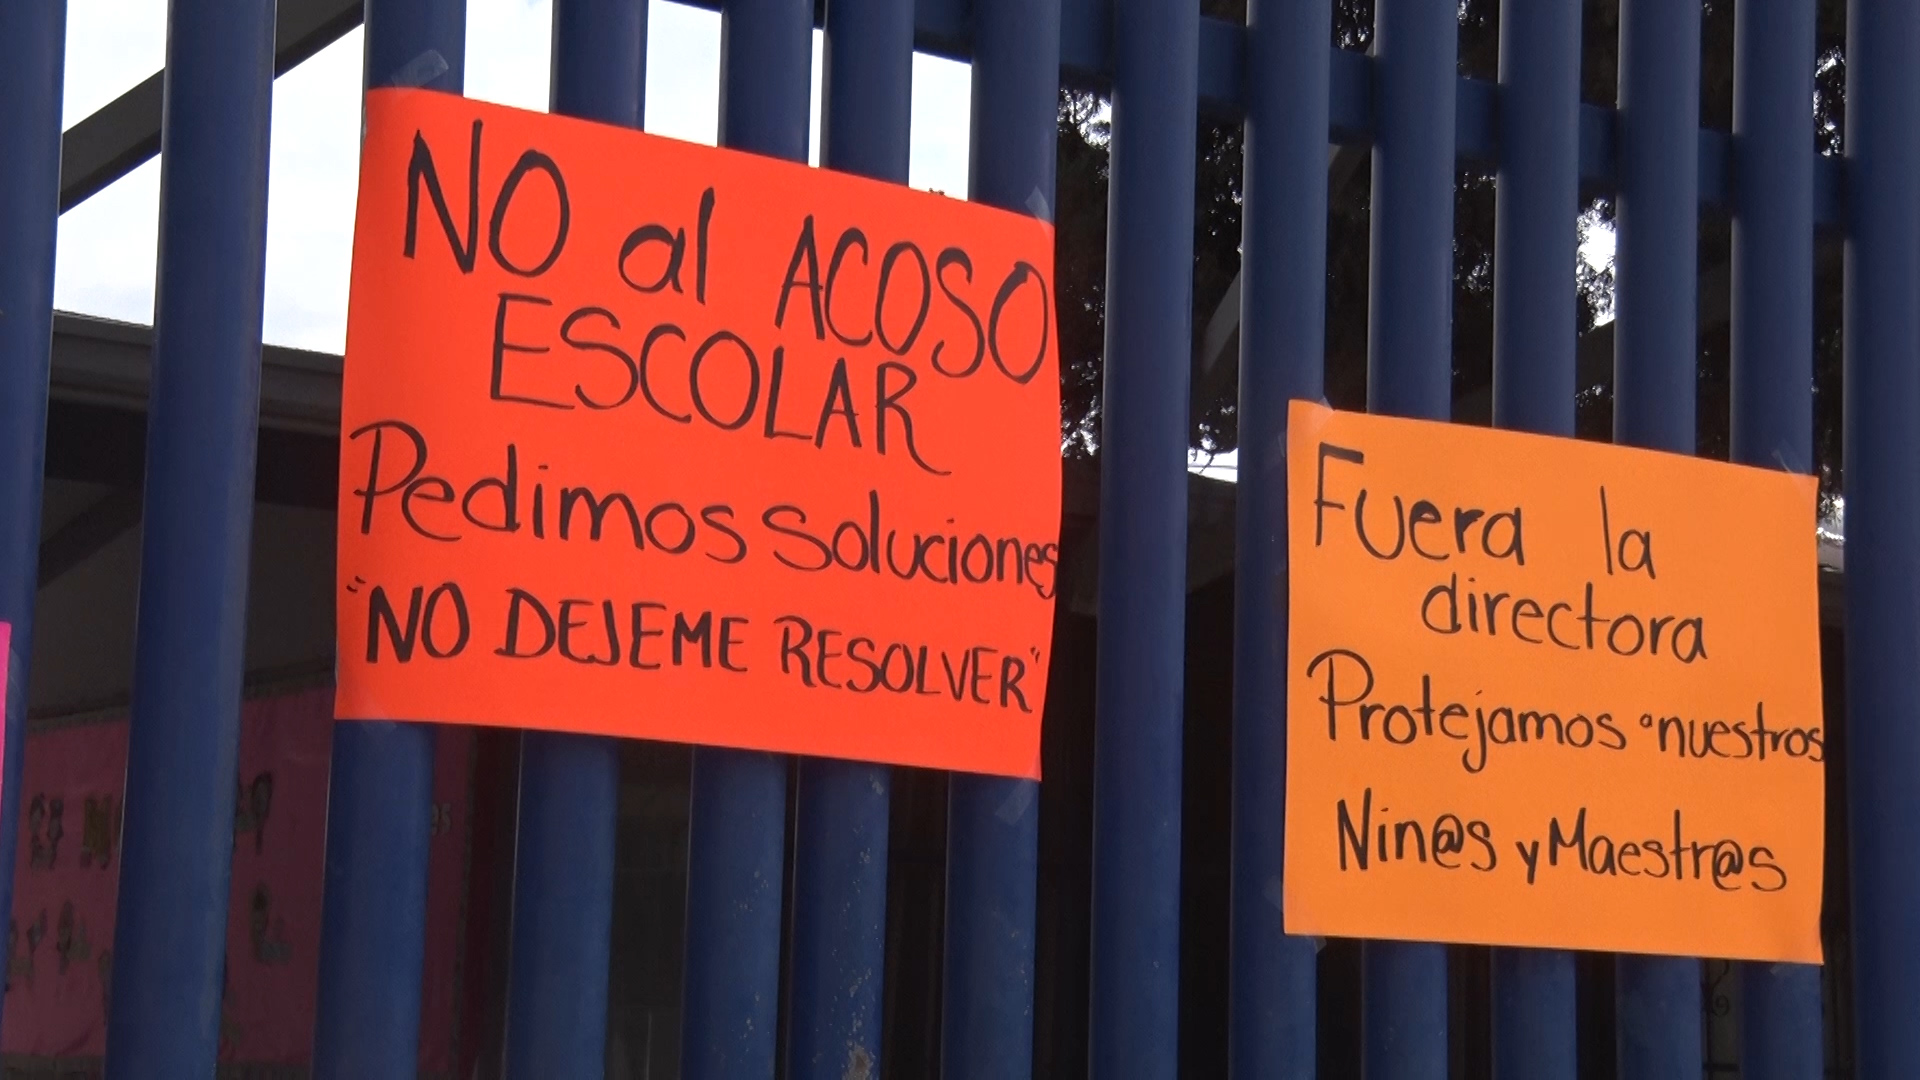 NO al ACOSO
ESCOLAR
Pedimos Soluciones
"NO DEJEME RESOLVER"
Fuera la
directora
Protejamos a nuestros
Nin@s y Maestr@s